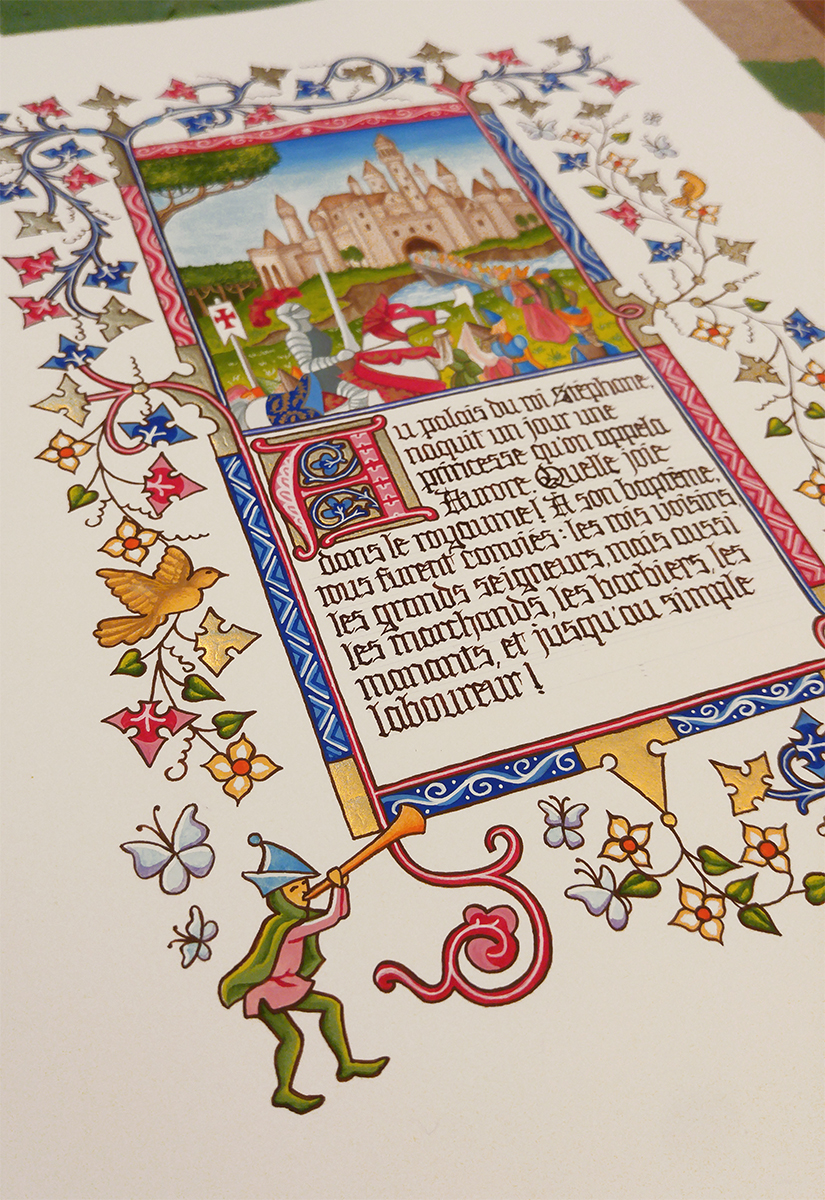 Au palais du roi Stéphane,
naquit un jour une
princesse qu'on appela
Aurore. Quelle joie
dans le royaume ! A son baptême,
tous furent conviés : les rois voisins
les grands seigneurs, mais aussi
les marchands, les barbiers, les
manants, et jusqu'au simple
laboureur !